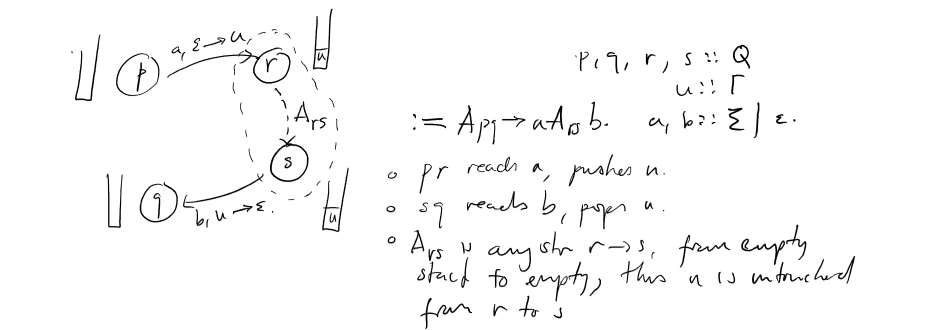 a, ε → u
p
r
u
A_rs
s
q
b, u → ε.
u
p, q, r, s :: Q
u :: Γ
:= A_pq → a A_rs b. a, b :: Σ | ε.
○ pr reads a, pushes u.
○ sq reads b, pops u.
○ A_rs is any str r → s, from empty
stack to empty, thus u is untouched
from r to s